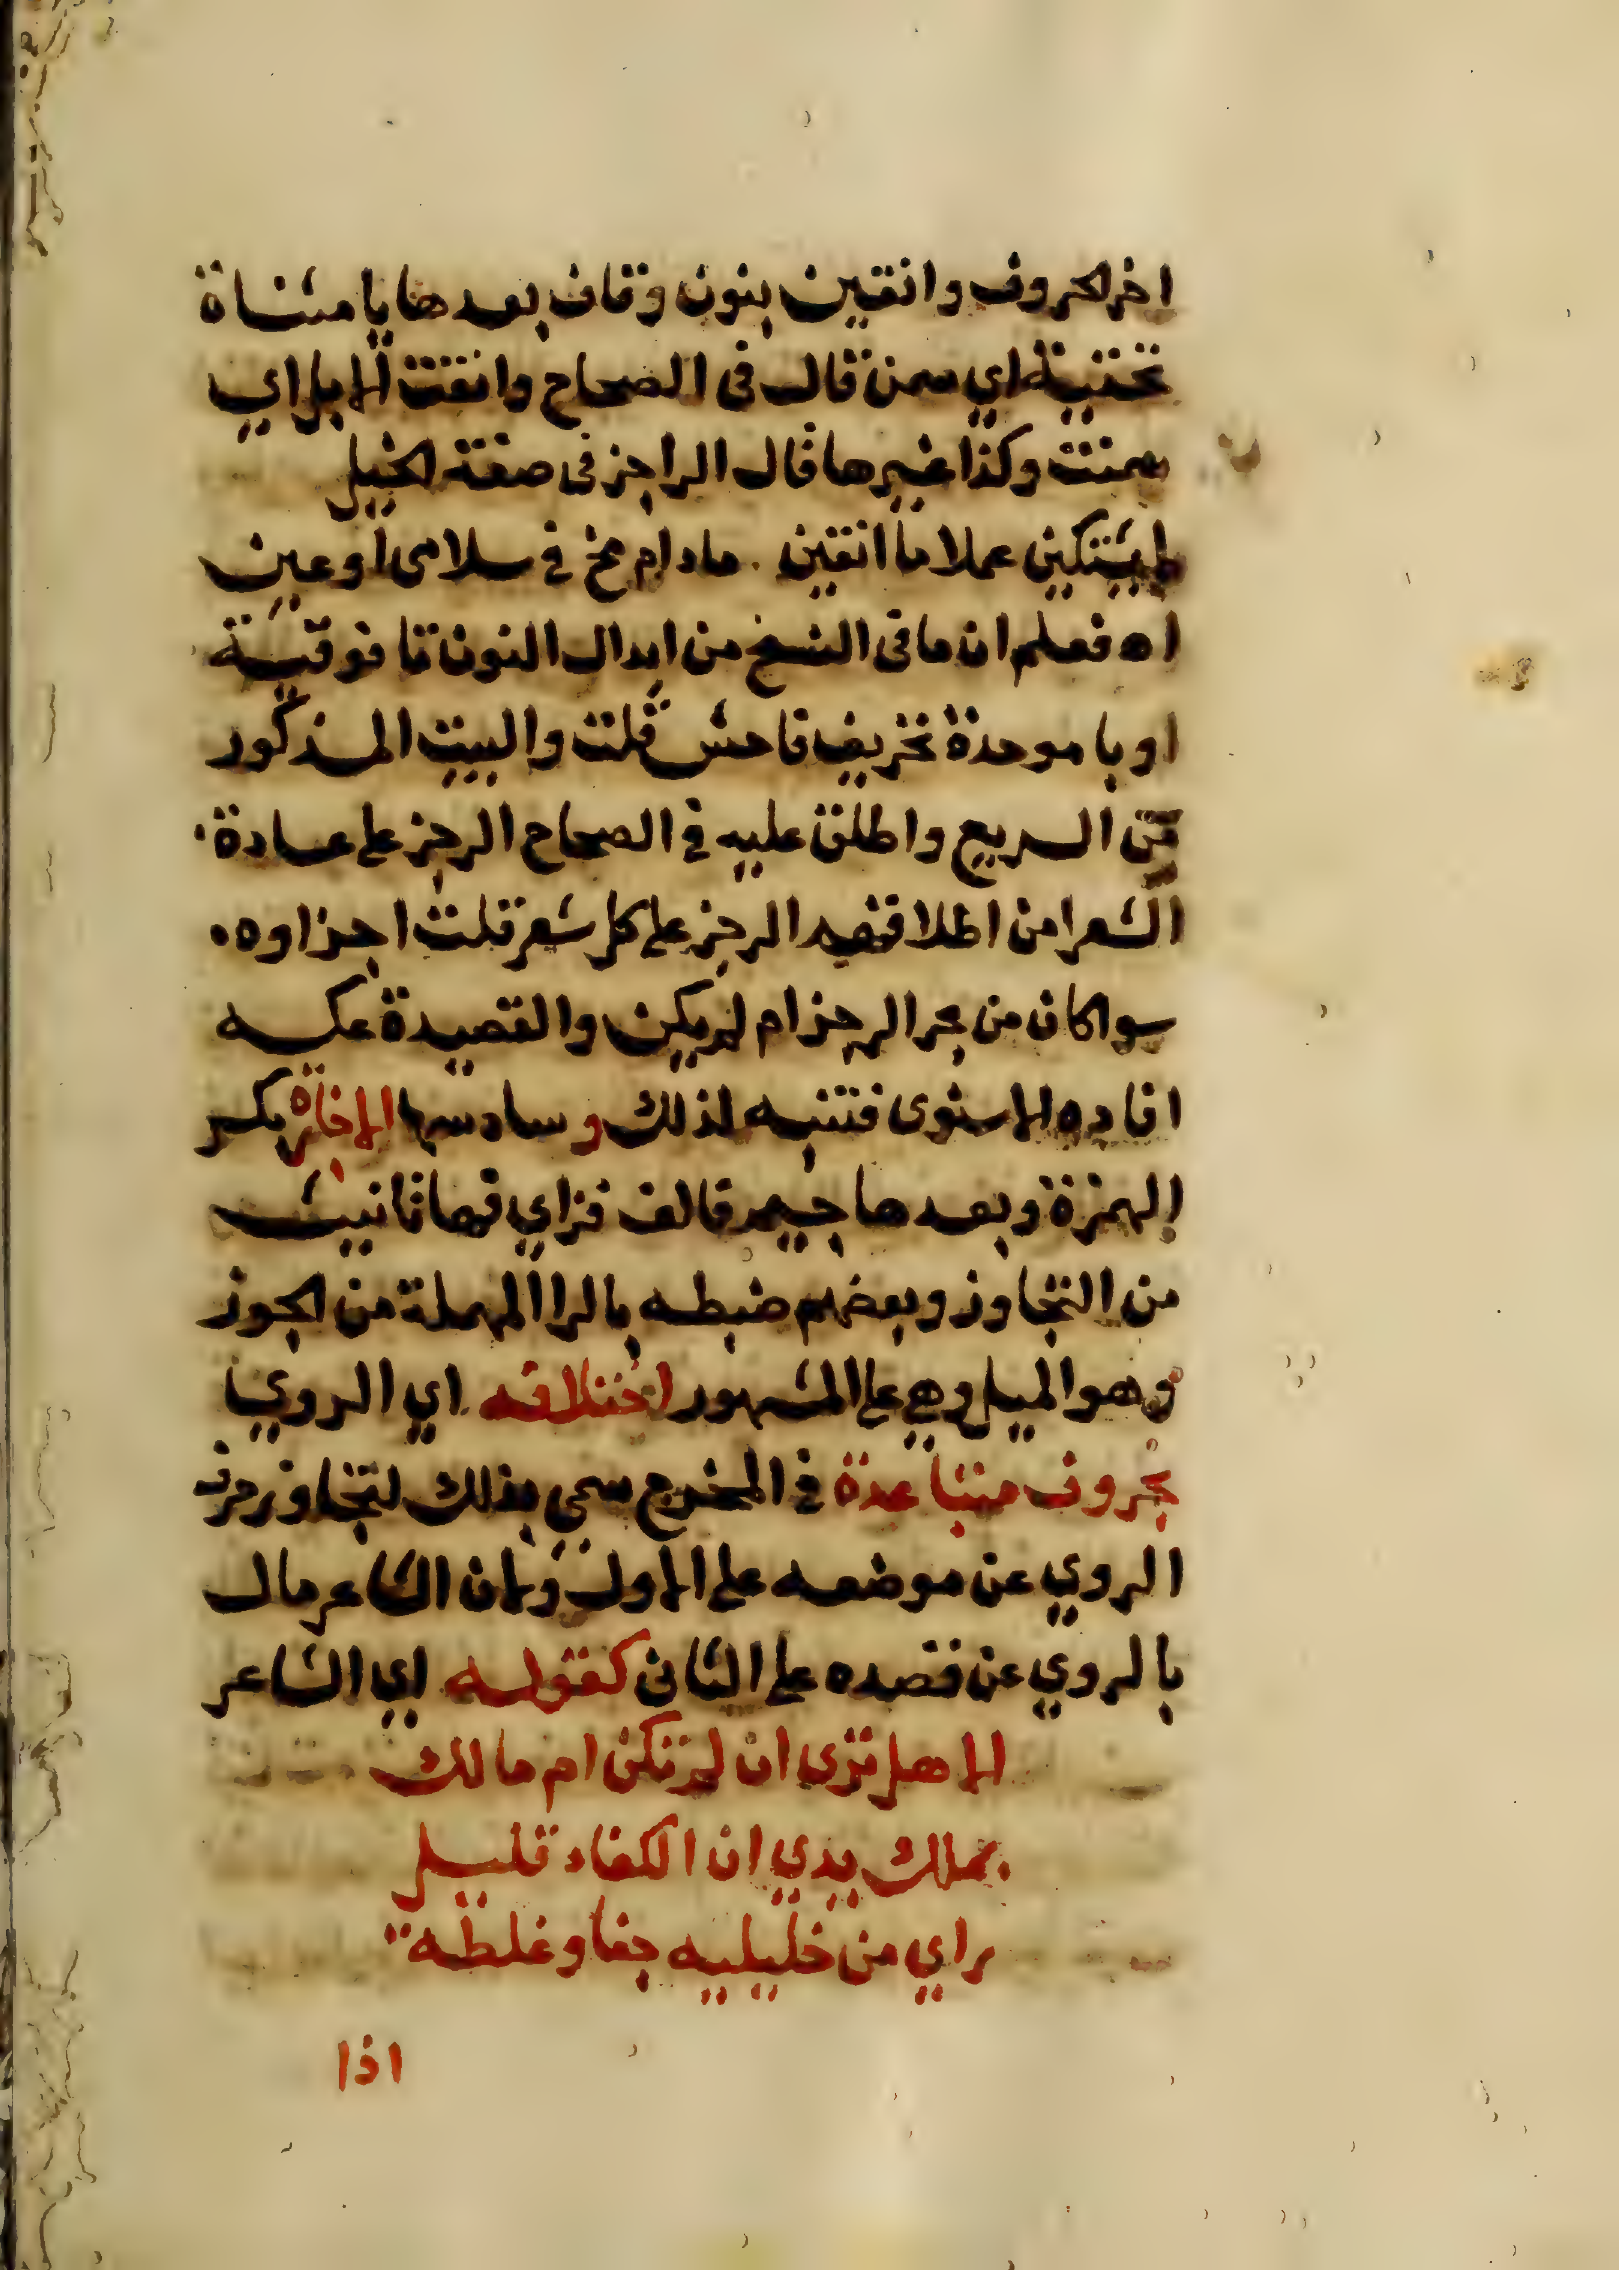 اخر الحروف وانقين بنون وقاف بعدها يا مثناة
تحتية اي سمن قال في الصحاح وانقت الابل اي
سمنت وكذا غيرها قال الراجز في صفة الخيل
لا يشتكين عملا ما انقين . مادام مخ في سلامى او عين
اه فعلم ان ما في النسخ من ابدال النون تا فوقية
او با موحدة تحريف فاحش قلت والبيت المذكور
من السريع واطلق عليه في الصحاح الرجز على عادة
الشعرا من اطلاقهم الرجز على كل شعر قلت اجزاوه
سوا كان من بحر الرجز ام لم يكن والقصيدة عكسه
افاده الاسنوى فتنبه لذلك وسادسها الاجازة بكسر
الهمزة وبعدها جيم فالف فزاي فها تانيث
من التجاوز وبعضهم ضبطه بالرا المهملة من الجور
وهو الميل وهي على المشهور اختلافه اي الروي
بحروف متباعدة في المخرج سمي بذلك لتجاوز حرف
الروي عن موضعه على الاول ولان الشاعر مال
بالروي عن قصده على الثاني كقوله اي الشاعر
الا هل ترى ان لم تكن ام مالك
بملك يدي ان الكفاء قليل
راي من خليليه جفا وغلظة
اذا